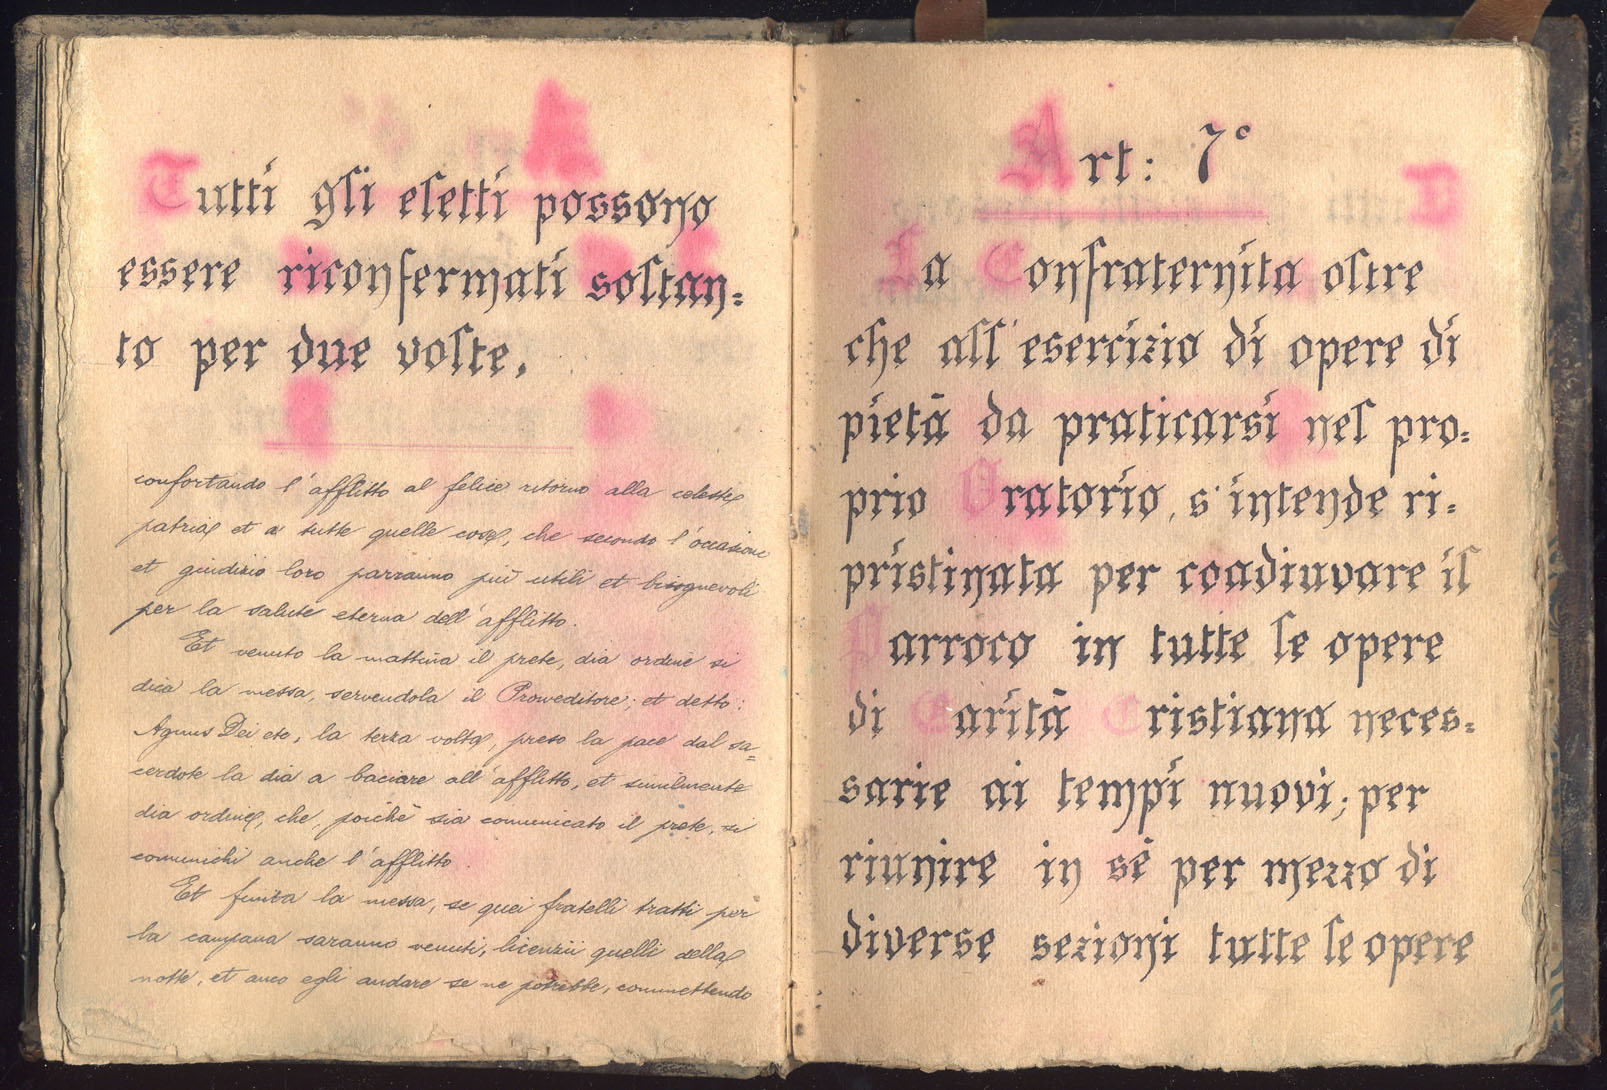 Tutti gli eletti possono
essere riconfermati soltan=
to per due volte.
confortando l'afflitto al felice ritorno alla celeste
patria et a tutte quelle cose, che secondo l'occasione
et giudizio loro parranno più utili et bisognevoli
per la salute eterna dell'afflitto.
Et venuto la mattina il prete, dia ordine si
dica la messa, servendola il Proveditore; et detto:
Agnus Dei etc, la terza volta, preso la pace dal sa=
cerdote la dia a baciare all'afflitto, et similmente
dia ordine, che, poichè sia comunicato il prete, si
comunichi anche l'afflitto.
Et finita la messa, se quei fratelli tratti per
la campana saranno venuti, licenzii quelli della
notte, et anco egli andare se ne potrebbe, commettendo
Art: 7°
La Confraternita oltre
che all'esercizio di opere di
pietà da praticarsi nel pro=
prio Oratorio, s'intende ri=
pristinata per coadiuvare il
Parroco in tutte le opere
di Carità Cristiana neces=
sarie ai tempi nuovi; per
riunire in sè per mezzo di
diverse sezioni tutte le opere